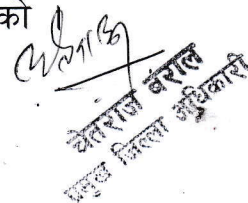 को
चेतराज बराल
प्रमुख जिल्ला अधिकारी